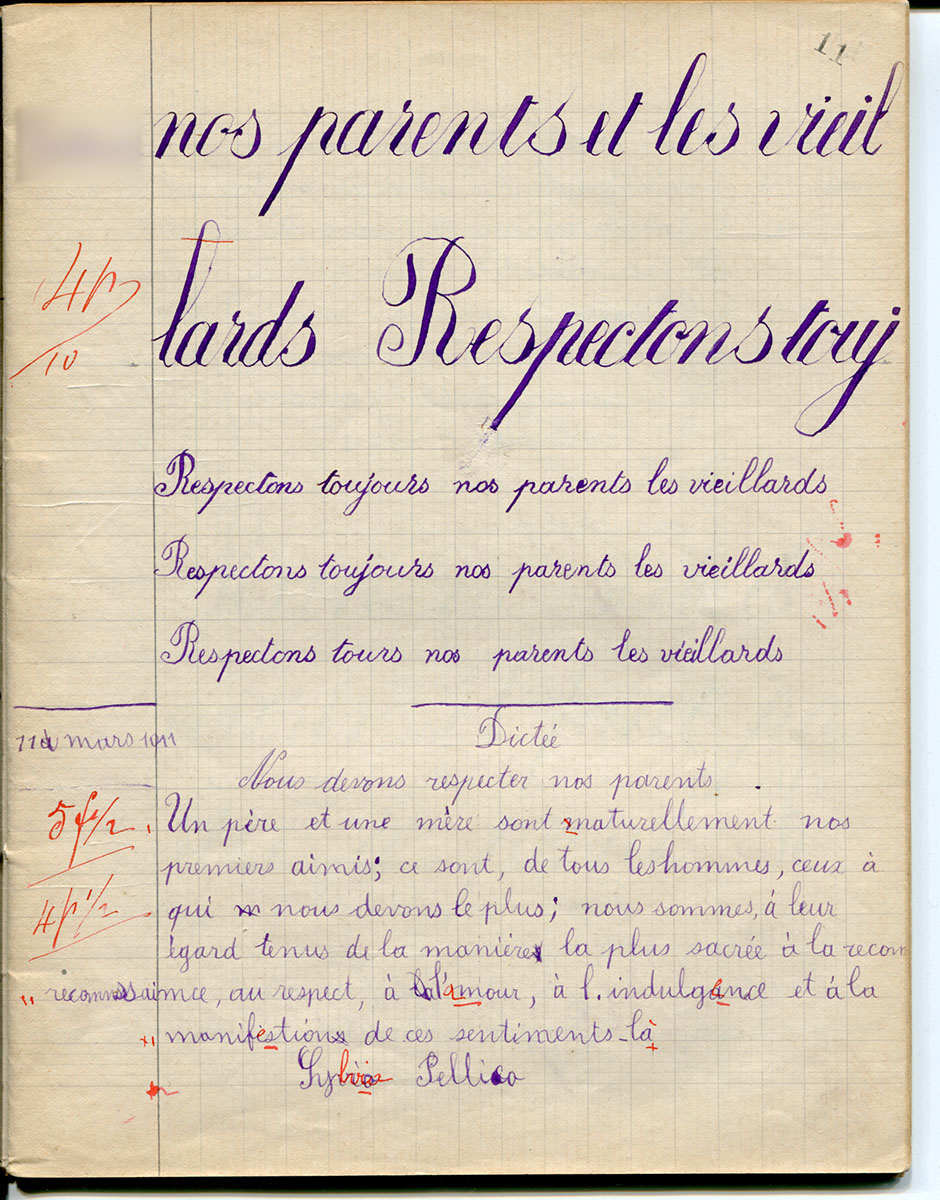 11
nos parents et les vieil
lards Respectons touj
10
Respectons toujours nos parents les vieillards
Respectons toujours nos parents les vieillards
Respectons tours nos parents les vieillards
11 mars 1911
Dictée
Nous devons respecter nos parents.
5f 1/2
Un père et une mère sont naturellement nos
premiers aimis; ce sont, de tous les hommes, ceux à
4f 1/2
qui nous devons le plus; nous sommes, à leur
égard tenus de la manière la plus sacrée à la recon
reconnssaince, au respect, à l'amour, à l'indulgance et à la
manifestion de ces sentiments-là
Pellico